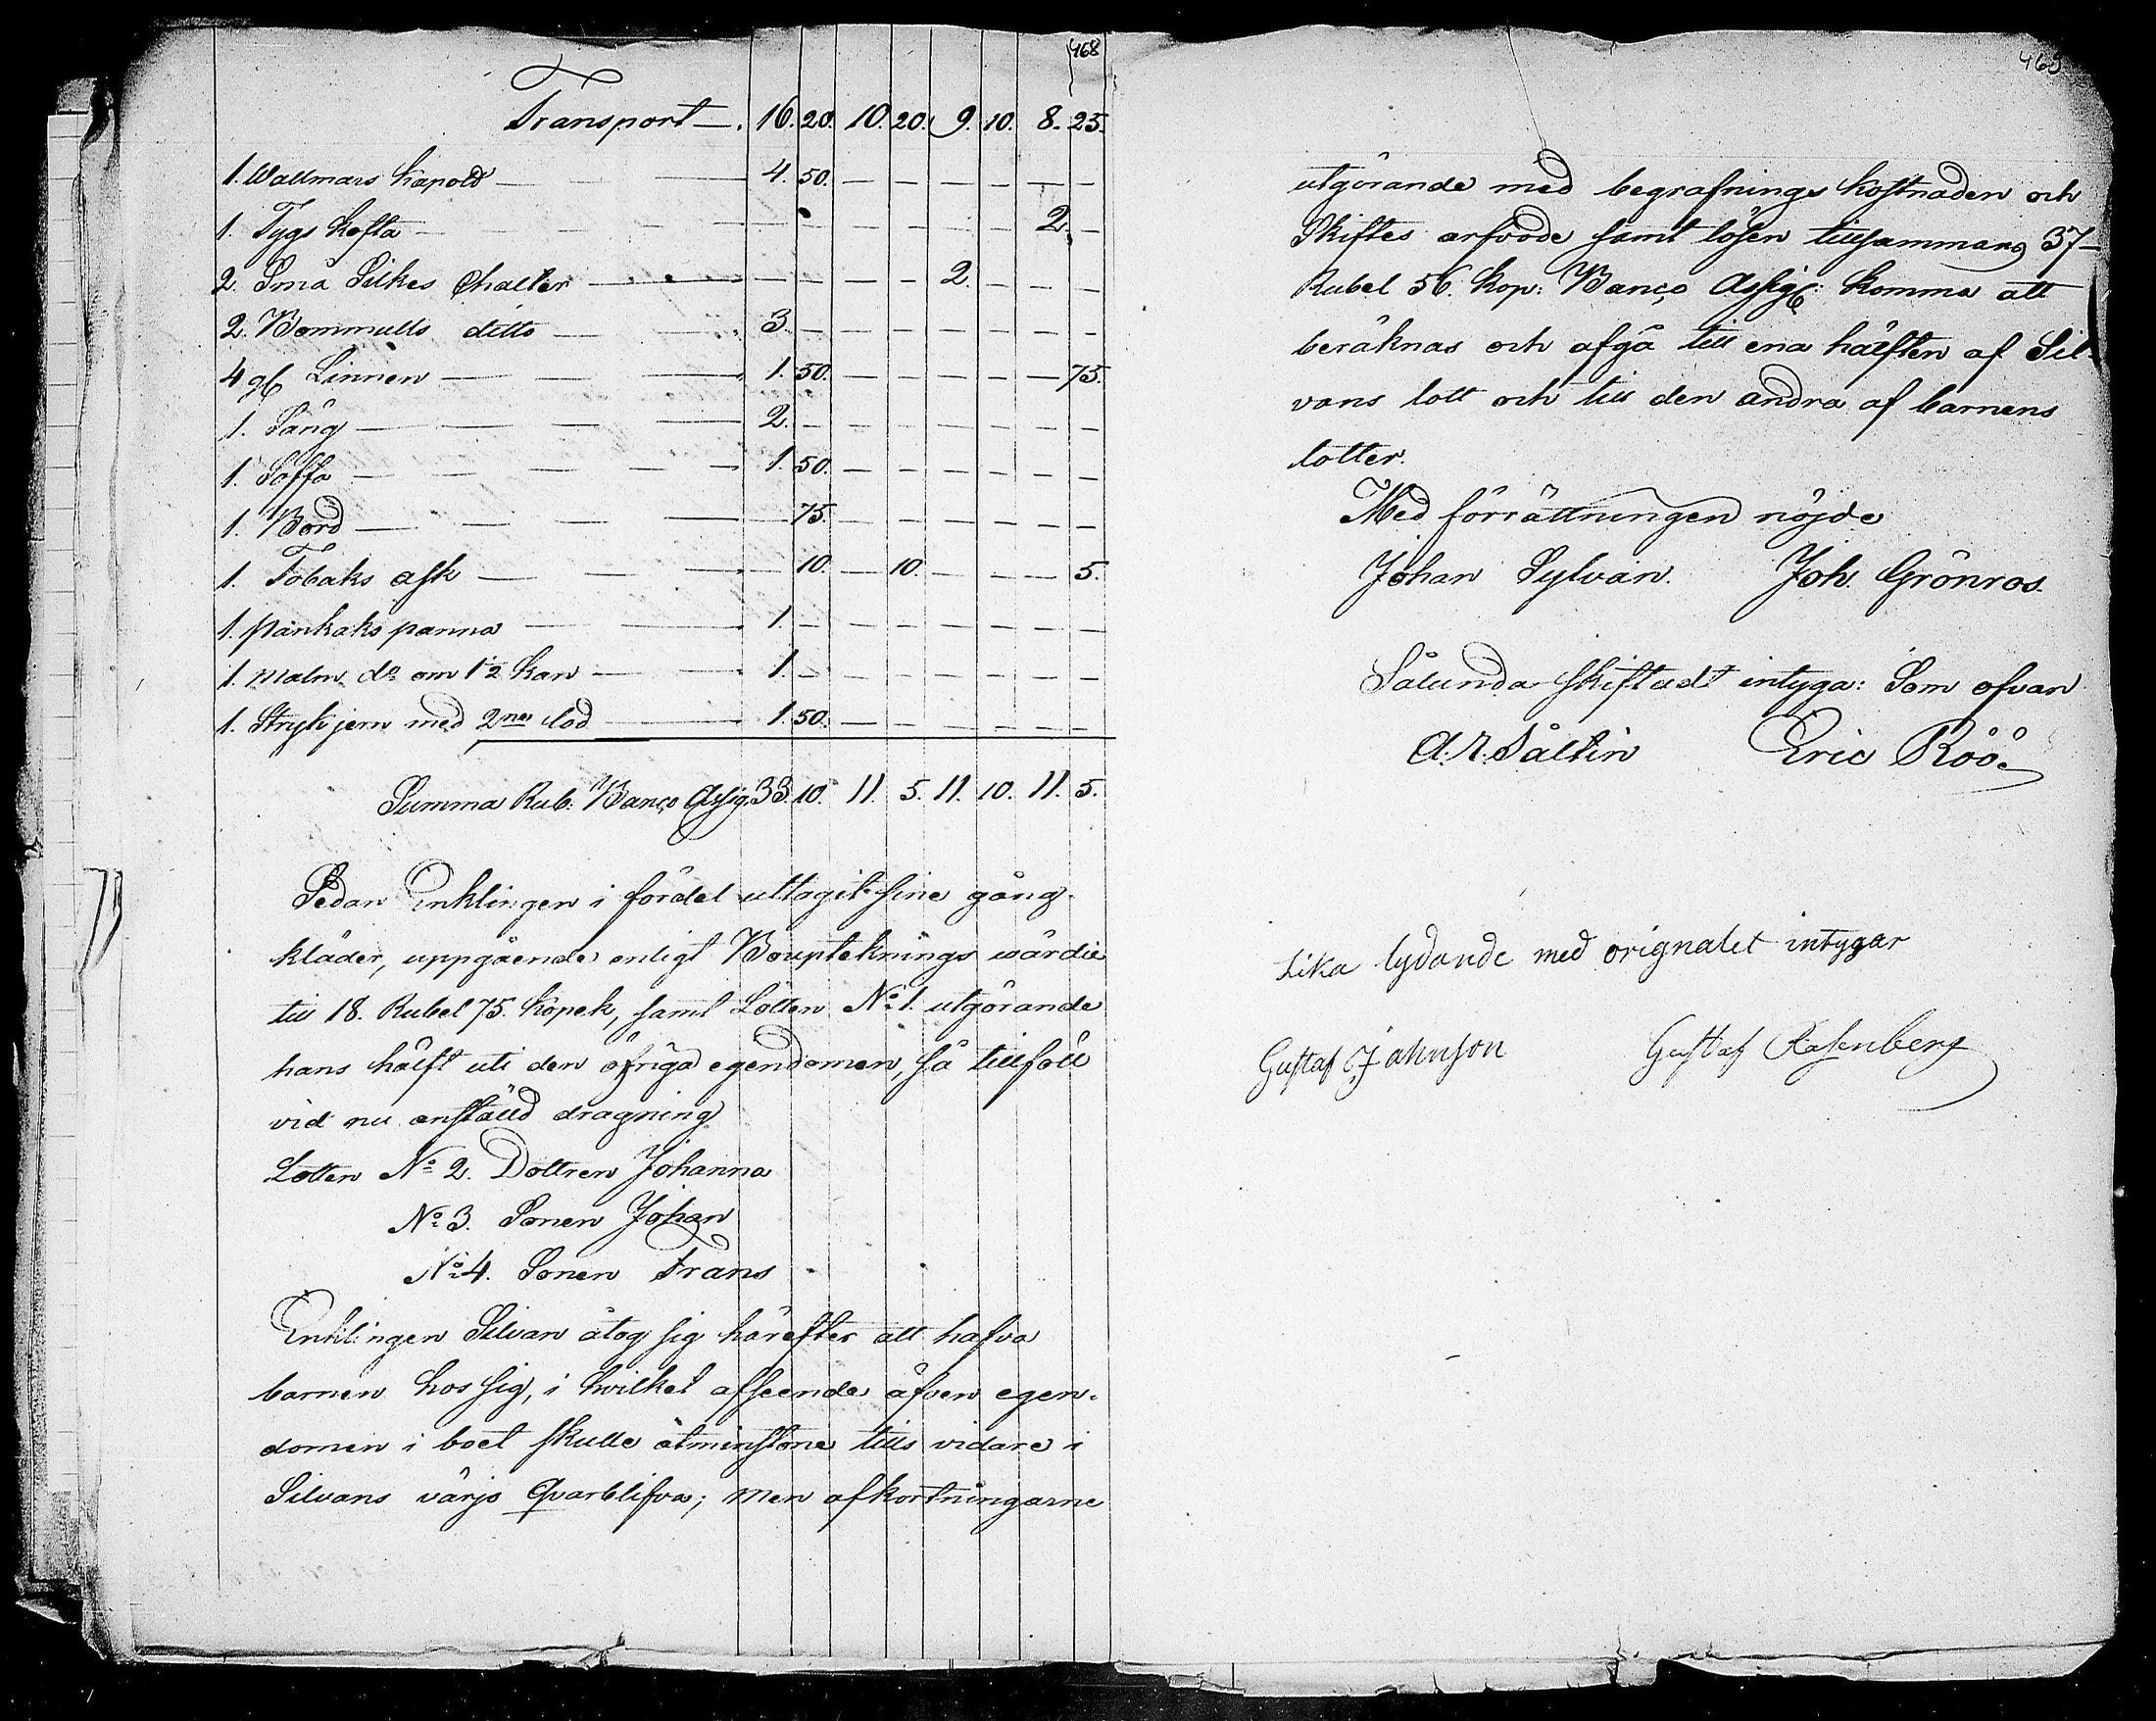 468
Transport —. 16. 20. 10. 20. 9. 10. 8. 25.
1. Wallmars Kapold — 4. 50. — — — — — —
1. Tygs Kofta — — — — — — — 2. —
2. Små Silkes Chalter — — — — — 2. — — —
2. Bommulls ditto — 3. — — — — — — —
4 st Linnen — 1. 50. — — — — — 75.
1. Säng — 2. — — — — — — —
1. Soffa — 1. 50. — — — — — —
1. Bord — — 75. — — — — — —
1. Tobaks ask — — 10. — 10. — — — 5.
1. Pankaks panna — 1. — — — — — — —
1. Malm do om 1 2 Kan — 1. — — — — — — —
1. Strykjern med 2ne lod — 1. 50. — — — — — —
Summa Rub. Banco Assig. 33. 10. 11. 5. 11. 10. 11. 5.
Sedan Enklingen i fördel uttagit sine gång-
kläder, uppgående enligt Boupteknings wärdie
till 18. Rubel 75. Kopek, samt Lotten No 1. utgörande
hans hälft uti den öfriga egendomen, så tillföll
vid nu anställd dragning
Lotten No 2. Dottren Johanna
No 3. Sonen Johan
No 4. Sonen Frans
Enklingen Silvan åtog sig härefter att hafva
barnen hos sig, i hvilket afseende äfven egen-
domen i boet skulle åtminstone tills vidare i
Silvans värjo qvarblifva; men afkortningarne
469
utgörande med begrafnings kostnaden och
Skiftes arfvode samt lösen tillsammans 37-
Rubel 56. Kop: Banco Assig: komma att
beräknas och afgå till ena hälften af Sil-
vans lott och till den andra af barnens
lotter.
Med förrättningen nöjde
Johan Sylvan. Joh. Grönros.
Sålunda skiftadt intyga: Som ofvan
A. R. Saltin Eric Röö.
Lika lydande med orignalet intygar
Gustaf Johnson Gustaf Rosenberg